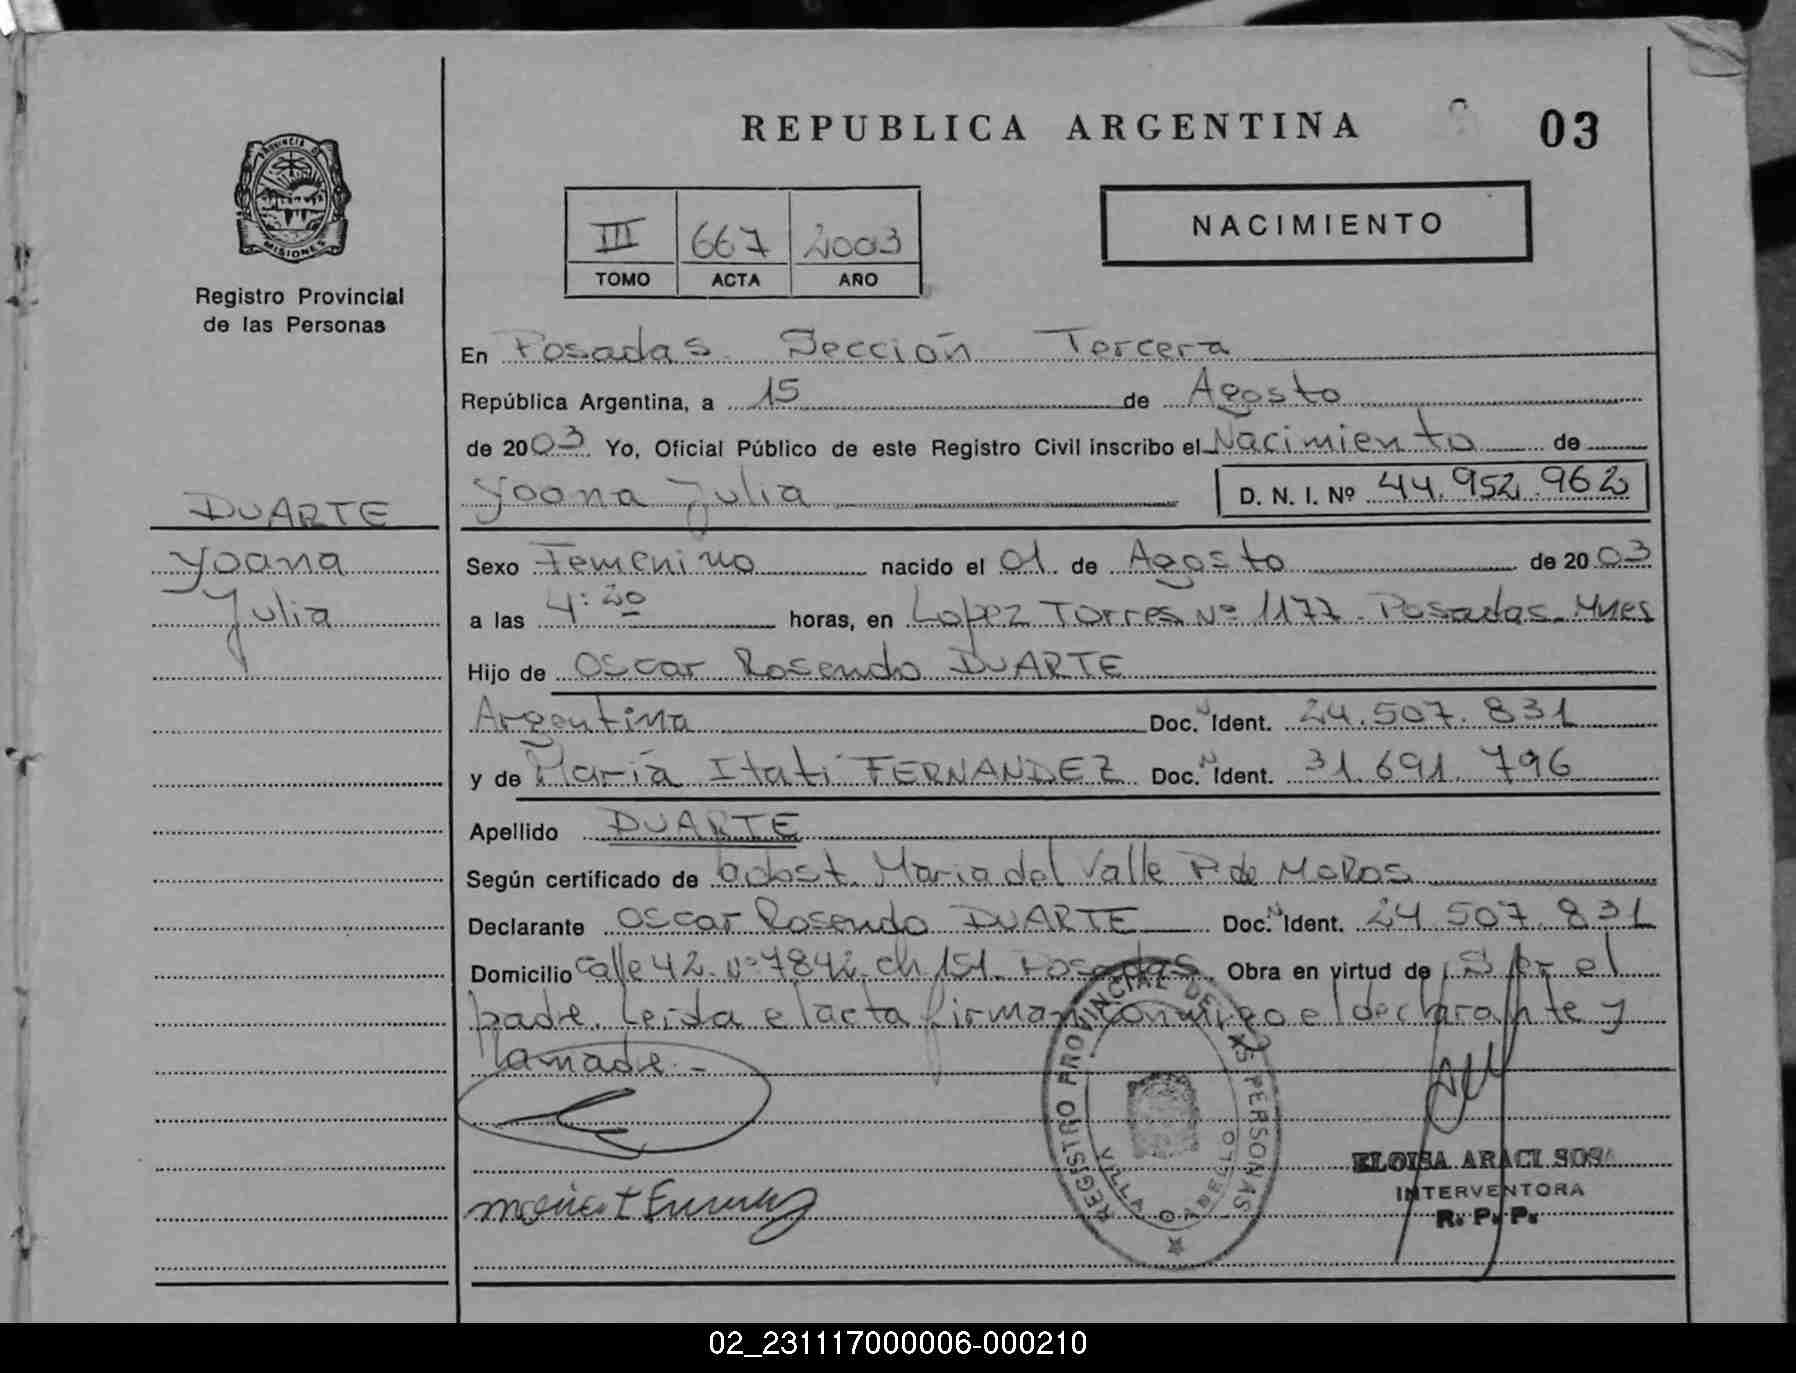 REPUBLICA ARGENTINA 03
PROVINCIA DE
MISIONES
Registro Provincial
de las Personas
III 667 2003
TOMO ACTA AÑO
NACIMIENTO
En Posadas Sección Tercera
República Argentina, a 15 de Agosto
de 2003 Yo, Oficial Público de este Registro Civil inscribo el Nacimiento de
Yoana Julia D. N. I. Nº 44.952.962
DUARTE
Yoana
Julia
Sexo Femenino nacido el 01 de Agosto de 2003
a las 4:20 horas, en Lopez Torres Nº 1177. Posadas. Mnes
Hijo de Oscar Rosendo DUARTE
Argentina Doc. N Ident. 24.507.831
y de María Itatí FERNANDEZ Doc. N Ident. 31.691.796
Apellido DUARTE
Según certificado de obst. Maria del Valle P. de
Declarante Oscar Rosendo DUARTE Doc. N Ident. 24.507.831
Domicilio Calle 42 Nº 7842 ch 151 Posadas Obra en virtud de ser el
padre. Leida el acta firman conmigo el declarante y
la madre.-
REGISTRO PROVINCIAL DE LAS PERSONAS
VILLA
ELOISA ARACI SOSA
INTERVENTORA
R. P. P.
02_231117000006-000210